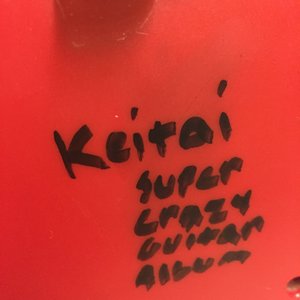 Keitai
SUPER
CRAZY
GUITAR
ALBUM